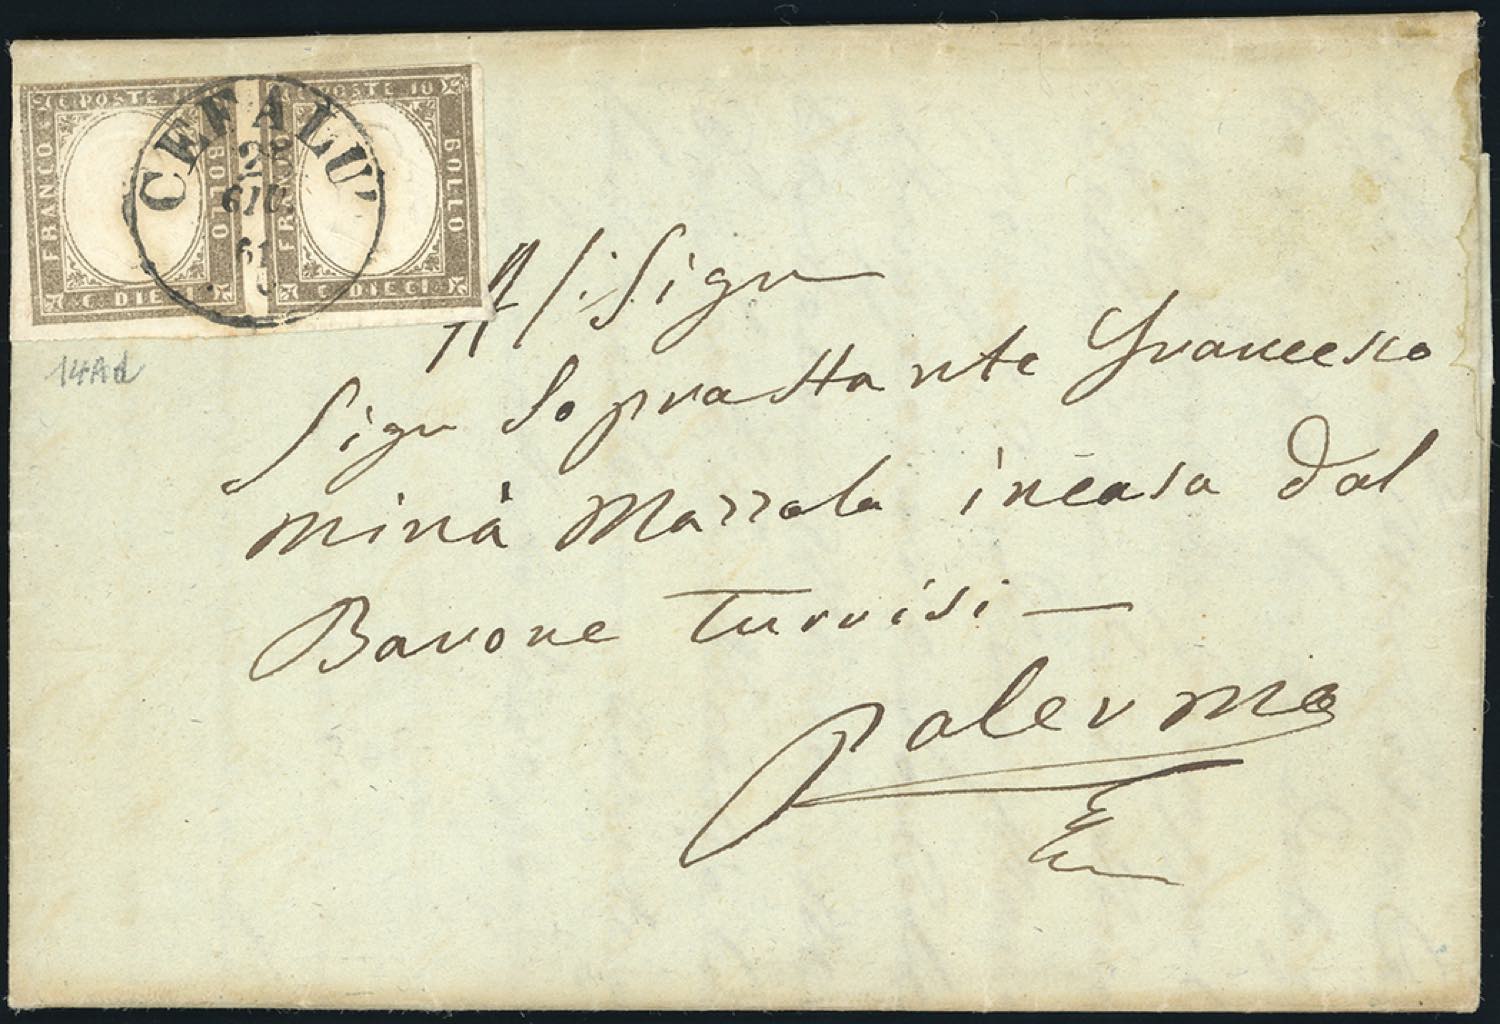 C. POSTE 10
FRANCO
BOLLO
C. DIECI
POSTE 10
FRANCO
BOLLO
C. DIECI
CEFALU'
28
GIU
61
14Ad
Al Sigr
Sigr Soprastante Francesco
Minà Mazzola in casa dal
Barone Turrisi —
Palermo